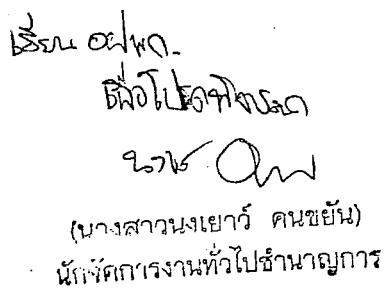 เรียน อฝพก.
เพื่อโปรดพิจารณา
(นางสาวนงเยาว์ คนขยัน)
นักจัดการงานทั่วไปชำนาญการ